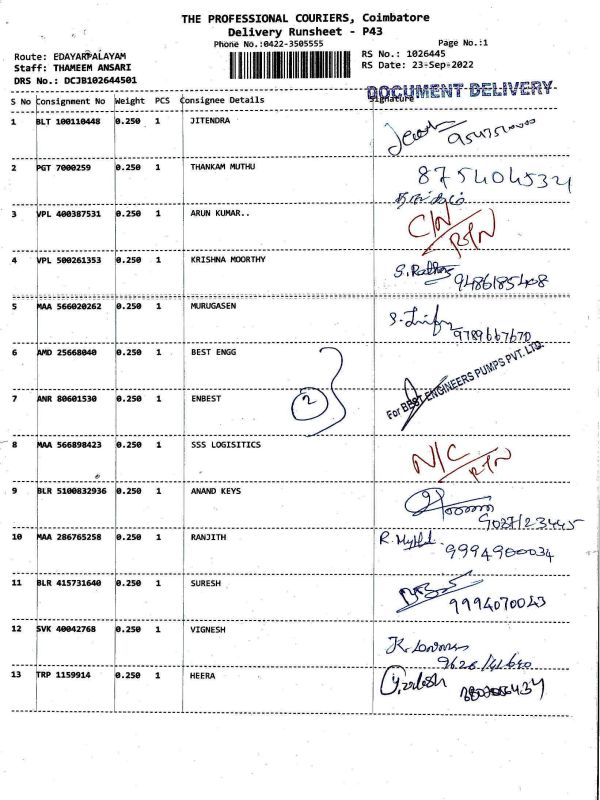 THE PROFESSIONAL COURIERS, Coimbatore
Delivery Runsheet - P43
Phone No.:0422-3505555 Page No.:1
Route: EDAYARPALAYAM RS No.: 1026445
Staff: THAMEEM ANSARI RS Date: 23-Sep-2022
DRS No.: DCJB102644501
DOCUMENT DELIVERY
S No Consignment No Weight PCS Consignee Details Signature
1 BLT 100110448 0.250 1 JITENDRA
2 PGT 7000259 0.250 1 THANKAM MUTHU 8754045321
3 VPL 400387531 0.250 1 ARUN KUMAR.. C/N
RTN
4 VPL 500261353 0.250 1 KRISHNA MOORTHY
9486185408
5 MAA 566020262 0.250 1 MURUGASEN
9789667670
6 AMD 25668040 0.250 1 BEST ENGG
For BEST ENGINEERS PUMPS PVT. LTD.
7 ANR 80601530 0.250 1 ENBEST 2
8 MAA 566898423 0.250 1 SSS LOGISITICS N/C
RTN
9 BLR 5100832936 0.250 1 ANAND KEYS
10 MAA 286765258 0.250 1 RANJITH
9994900034
11 BLR 415731640 0.250 1 SURESH
9994070043
12 SVK 40042768 0.250 1 VIGNESH
13 TRP 1159914 0.250 1 HEERA